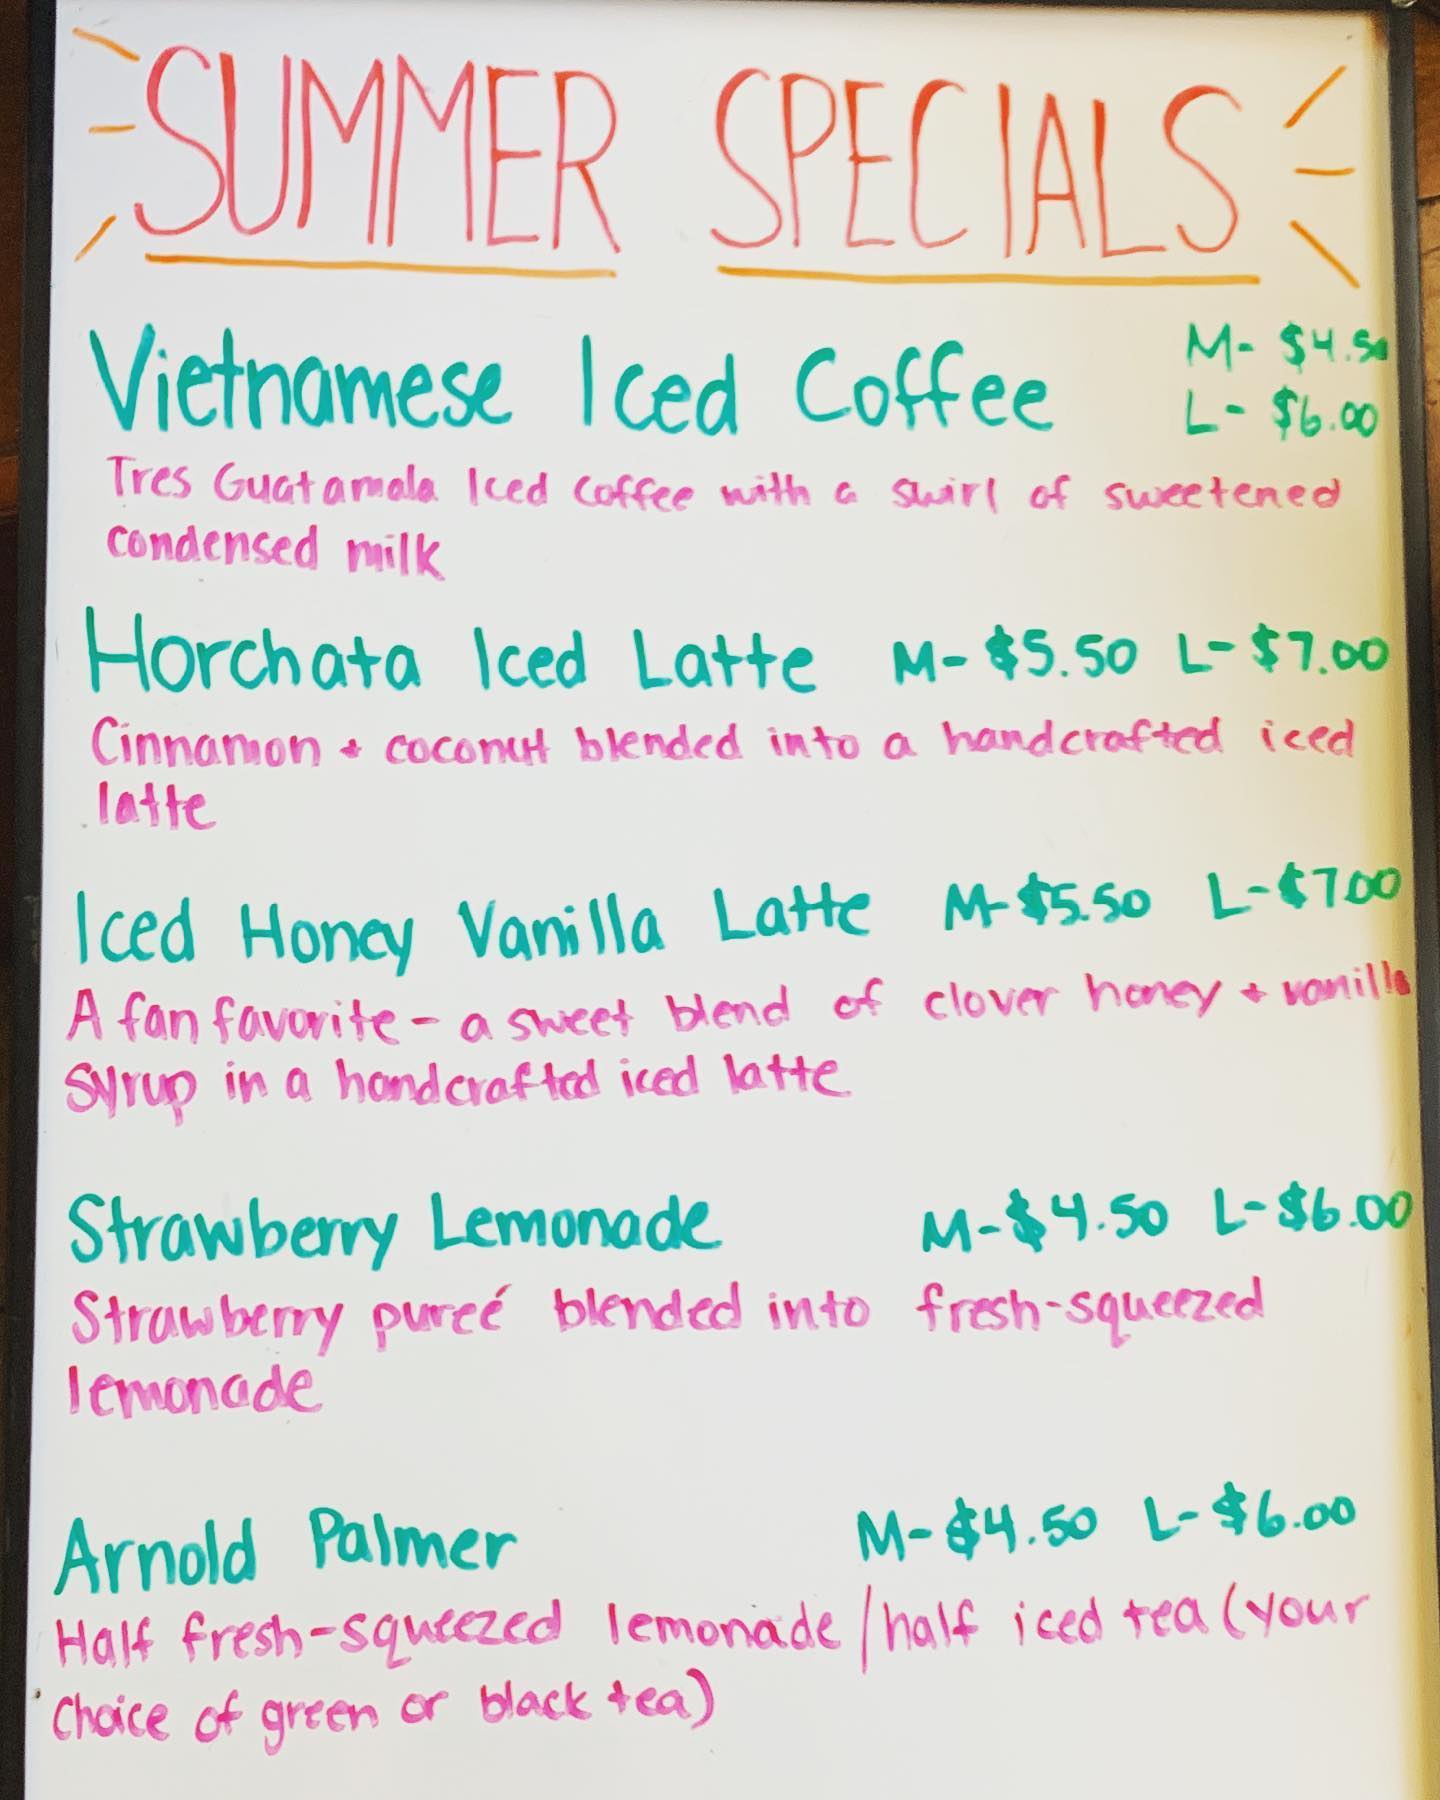 SUMMER SPECIALS
Vietnamese Iced Coffee M- $4.50
L- $6.00
Tres Guatamala Iced coffee with a swirl of sweetened
condensed milk
Horchata Iced Latte M- $5.50 L- $7.00
Cinnamon + coconut blended into a handcrafted iced
latte
Iced Honey Vanilla Latte M- $5.50 L- $7.00
A fan favorite - a sweet blend of clover honey + vanilla
syrup in a handcrafted iced latte
Strawberry Lemonade M- $4.50 L- $6.00
Strawberry pureé blended into fresh-squeezed
lemonade
Arnold Palmer M- $4.50 L- $6.00
Half fresh-squeezed lemonade / half iced tea (your
choice of green or black tea)